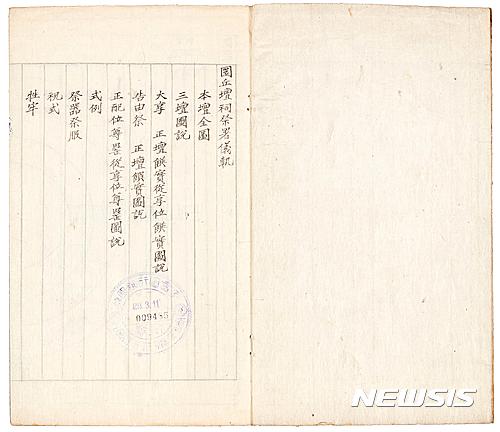 圜丘壇祠祭署儀軌
本壇全圖
三壇圖說
大享 正壇饌實從享位饌實圖說
告由祭 正壇饌實圖說
正配位尊罍從享位尊罍圖說
式例
祭器祭服
祝式
牲牢
3.11
NEWSIS